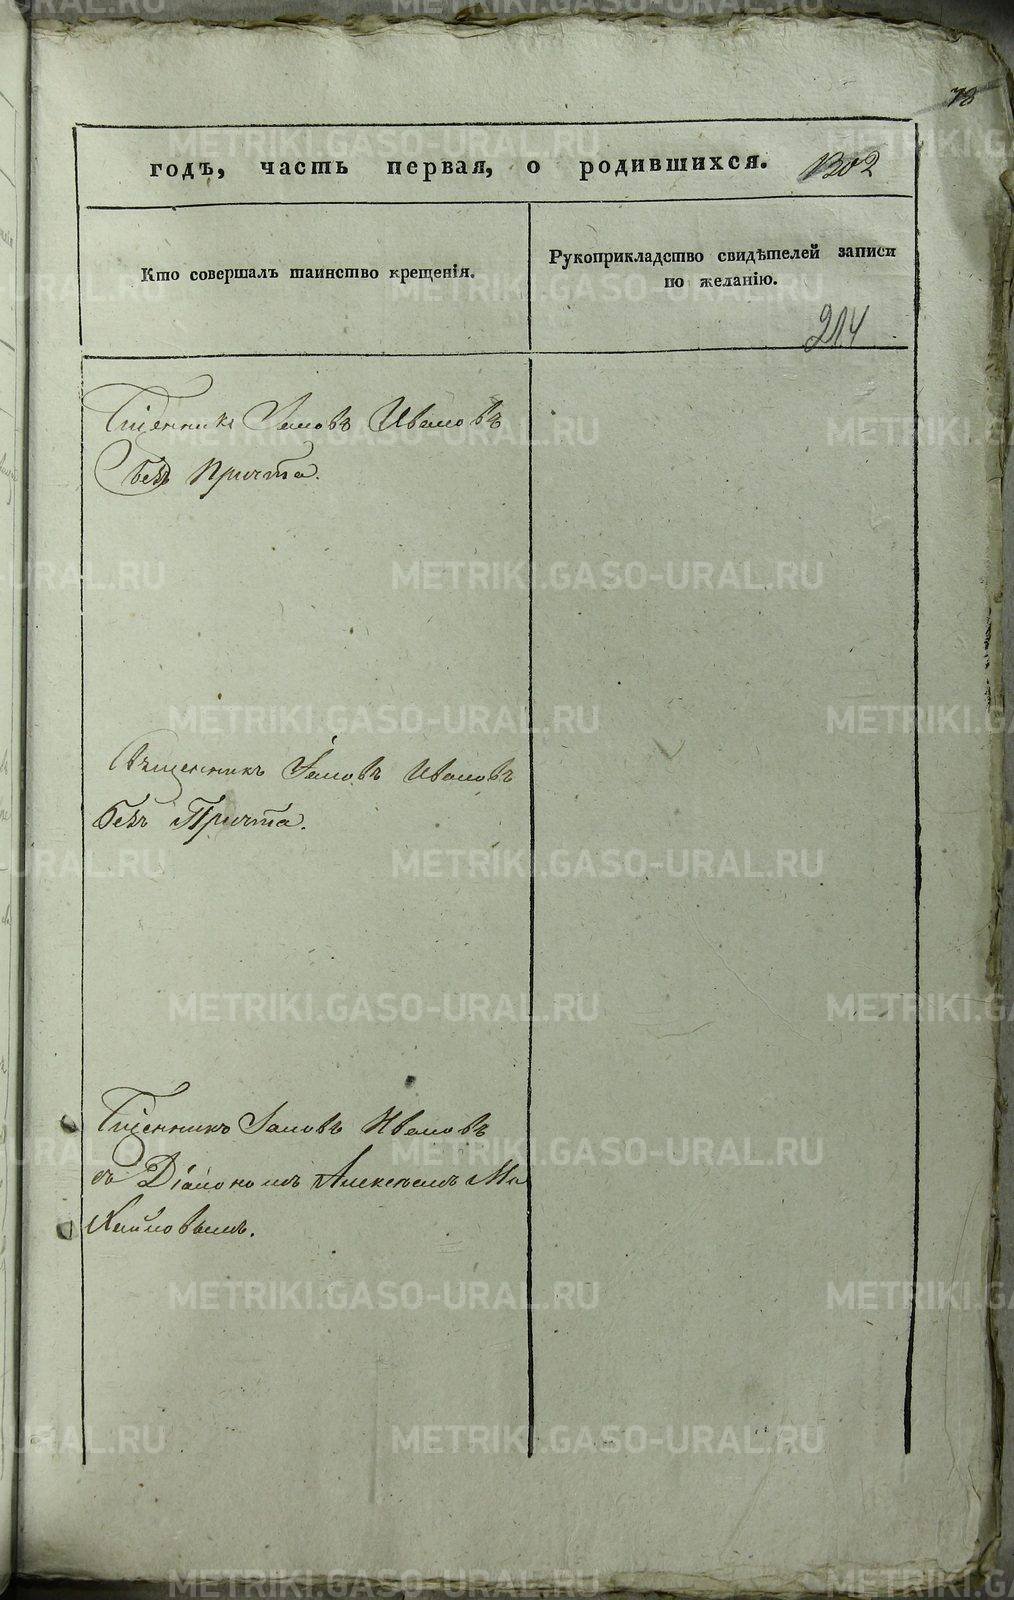 78
годъ, часть первая, о родившихся. 1302
Кто совершалъ таинство крещенія.
Рукоприкладство свидѣтелей записи
по желанію.
214
Сщенникъ Іаковъ Ивановъ
безъ Причта.
Священникъ Іаковъ Ивановъ
безъ Причта.
Сщенникъ Іаковъ Ивановъ
съ Діакономъ Алексѣемъ Ми
хайловымъ.
METRIKI.GASO-URAL.RU